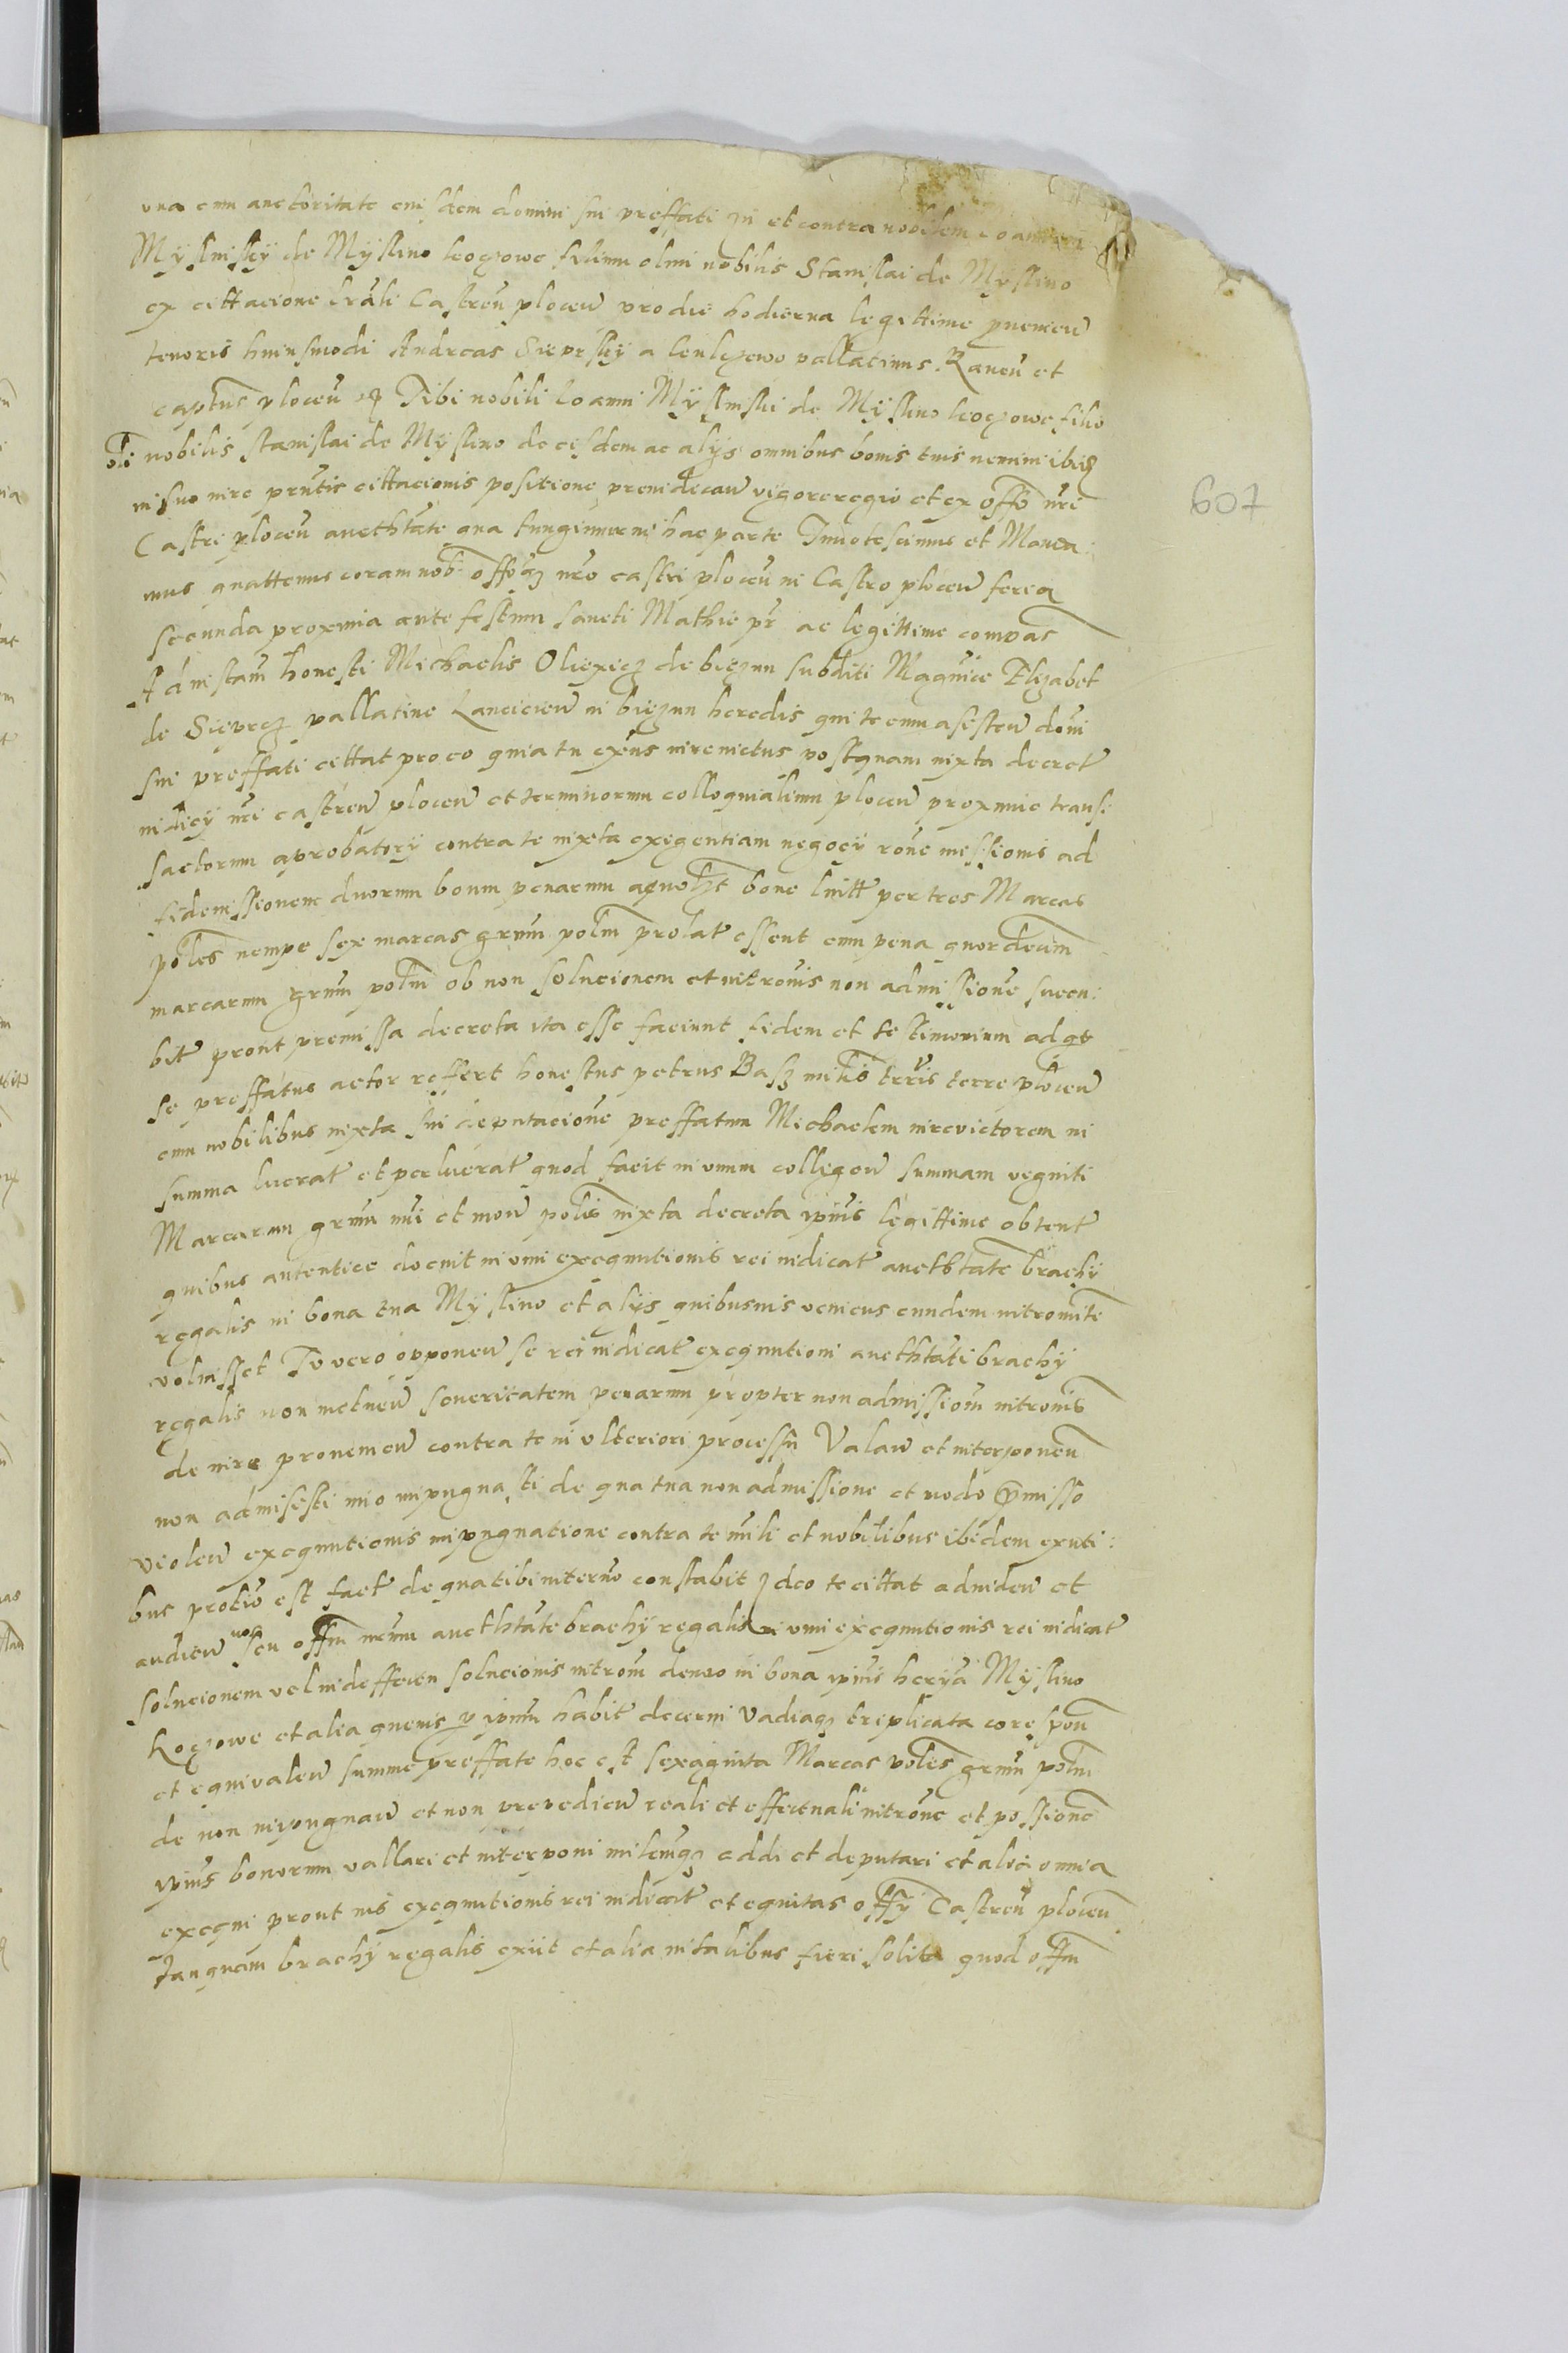 una cum auctoritate eiusdem domini sui preffati in et contra nobilem Joannem
Myslinsky de Myslino koczowo filium olim nobilis Stanislai de Myslino
ex cittacione lrali Castren plocen pro die hodierna legittime provenien
tenoris huiusmodi Andreas Sieprsky a pallatinus Raven et
captus plocen etc Tibi nobili Joanni Myslinski de Myslino koczowo filio
olim nobilis stanislai de Myslino de eisdem ac alijs omnibus bonis tuis
in suo iure pntis cittacionis positione preiudican vigore regio et ex offo nri
Castri plocen aucthtate qua fungimur in hac parte Innotescimus et Manda:
mus quattenus coram nob offoq nro castri plocen in Castro plocen feria
secunda proxima ante festum sancti Mathie pr ac legittime compas
Ad instam honesti Michaelis de biezun subditi Magnice Elizabet
de Sieprcz pallatine Lancicien in biezun heredis qui te cum asisten dni
sui preffati cittat pro eo quia tu exns iurevictus postquam iuxta decret
iudicy nri castren plocen et terminorum colloquialium plocen proxime trans:
sactorum aprobatory contra te iuxta exigentiam negocy rone missionis ad
fideiussionem duorum boum penarum bone luitt per tres Marcas
poles nempe sex marcas grum polm prolat essent cum pena quordecim
marcarum grum polm ob non solucionem et intromis non admissione succu:
bit prout premissa decreta ita esse faciunt fidem et testimonium ad que
se preffatus actor reffert honestus petrus Basz mihis trris terre plocen
cum nobilibus iuxta sui deputacione preffatum Michaelem iurevictorem in
summa lucrat et perlucrat quod facit in unum collegen summam veginti
Marcarum grum nui et mon polis iuxta decreta ipius legittime obtent
quibus autentice docuit in vim exequutionis rei iudicat aucthtate brachy
regalis in bona tua Myslino et alijs quibusvis venicus eundem intromitte
voluisset Tu vero opponen se rei iudicat exequutioni aucthtati brachy
regalis non metuen severitatem penarum propter non admissiom intromis
de iure pronemen contra te in ulteriori processu Valan et interponen
non admisisti imo inpugnasti de qua tua non admissione et modo pmisso
violen exequutionis inpugnatione contra te mihi et nobilibus ibidem exnti:
bus protio est fact de qua tibi intermo constabit Ideo te cittat ad viden et
audien nos seu offm nrum aucthtate brachy regalis in vim exequutionis rei iudicat
solucionem vel in deffectu solucionis introm denuo in bona ipius heria Myslino
koczowo et alia quevis p ipum habit decerni vadiaq triplicata corespon
et equivalen summe preffate hoc est sexaginta Marcas poles grum polm
de non inpugnan et non prepedien reali et effectuali introne et possione
ipius bonorum vallari et interponi milemq addi et deputari et alia omnia
exequi prout ius exequutionis rei iudicat et equitas offy Castren plocen
tanquam brachy regalis exiit et alia in talibus fieri solita quod offm
607